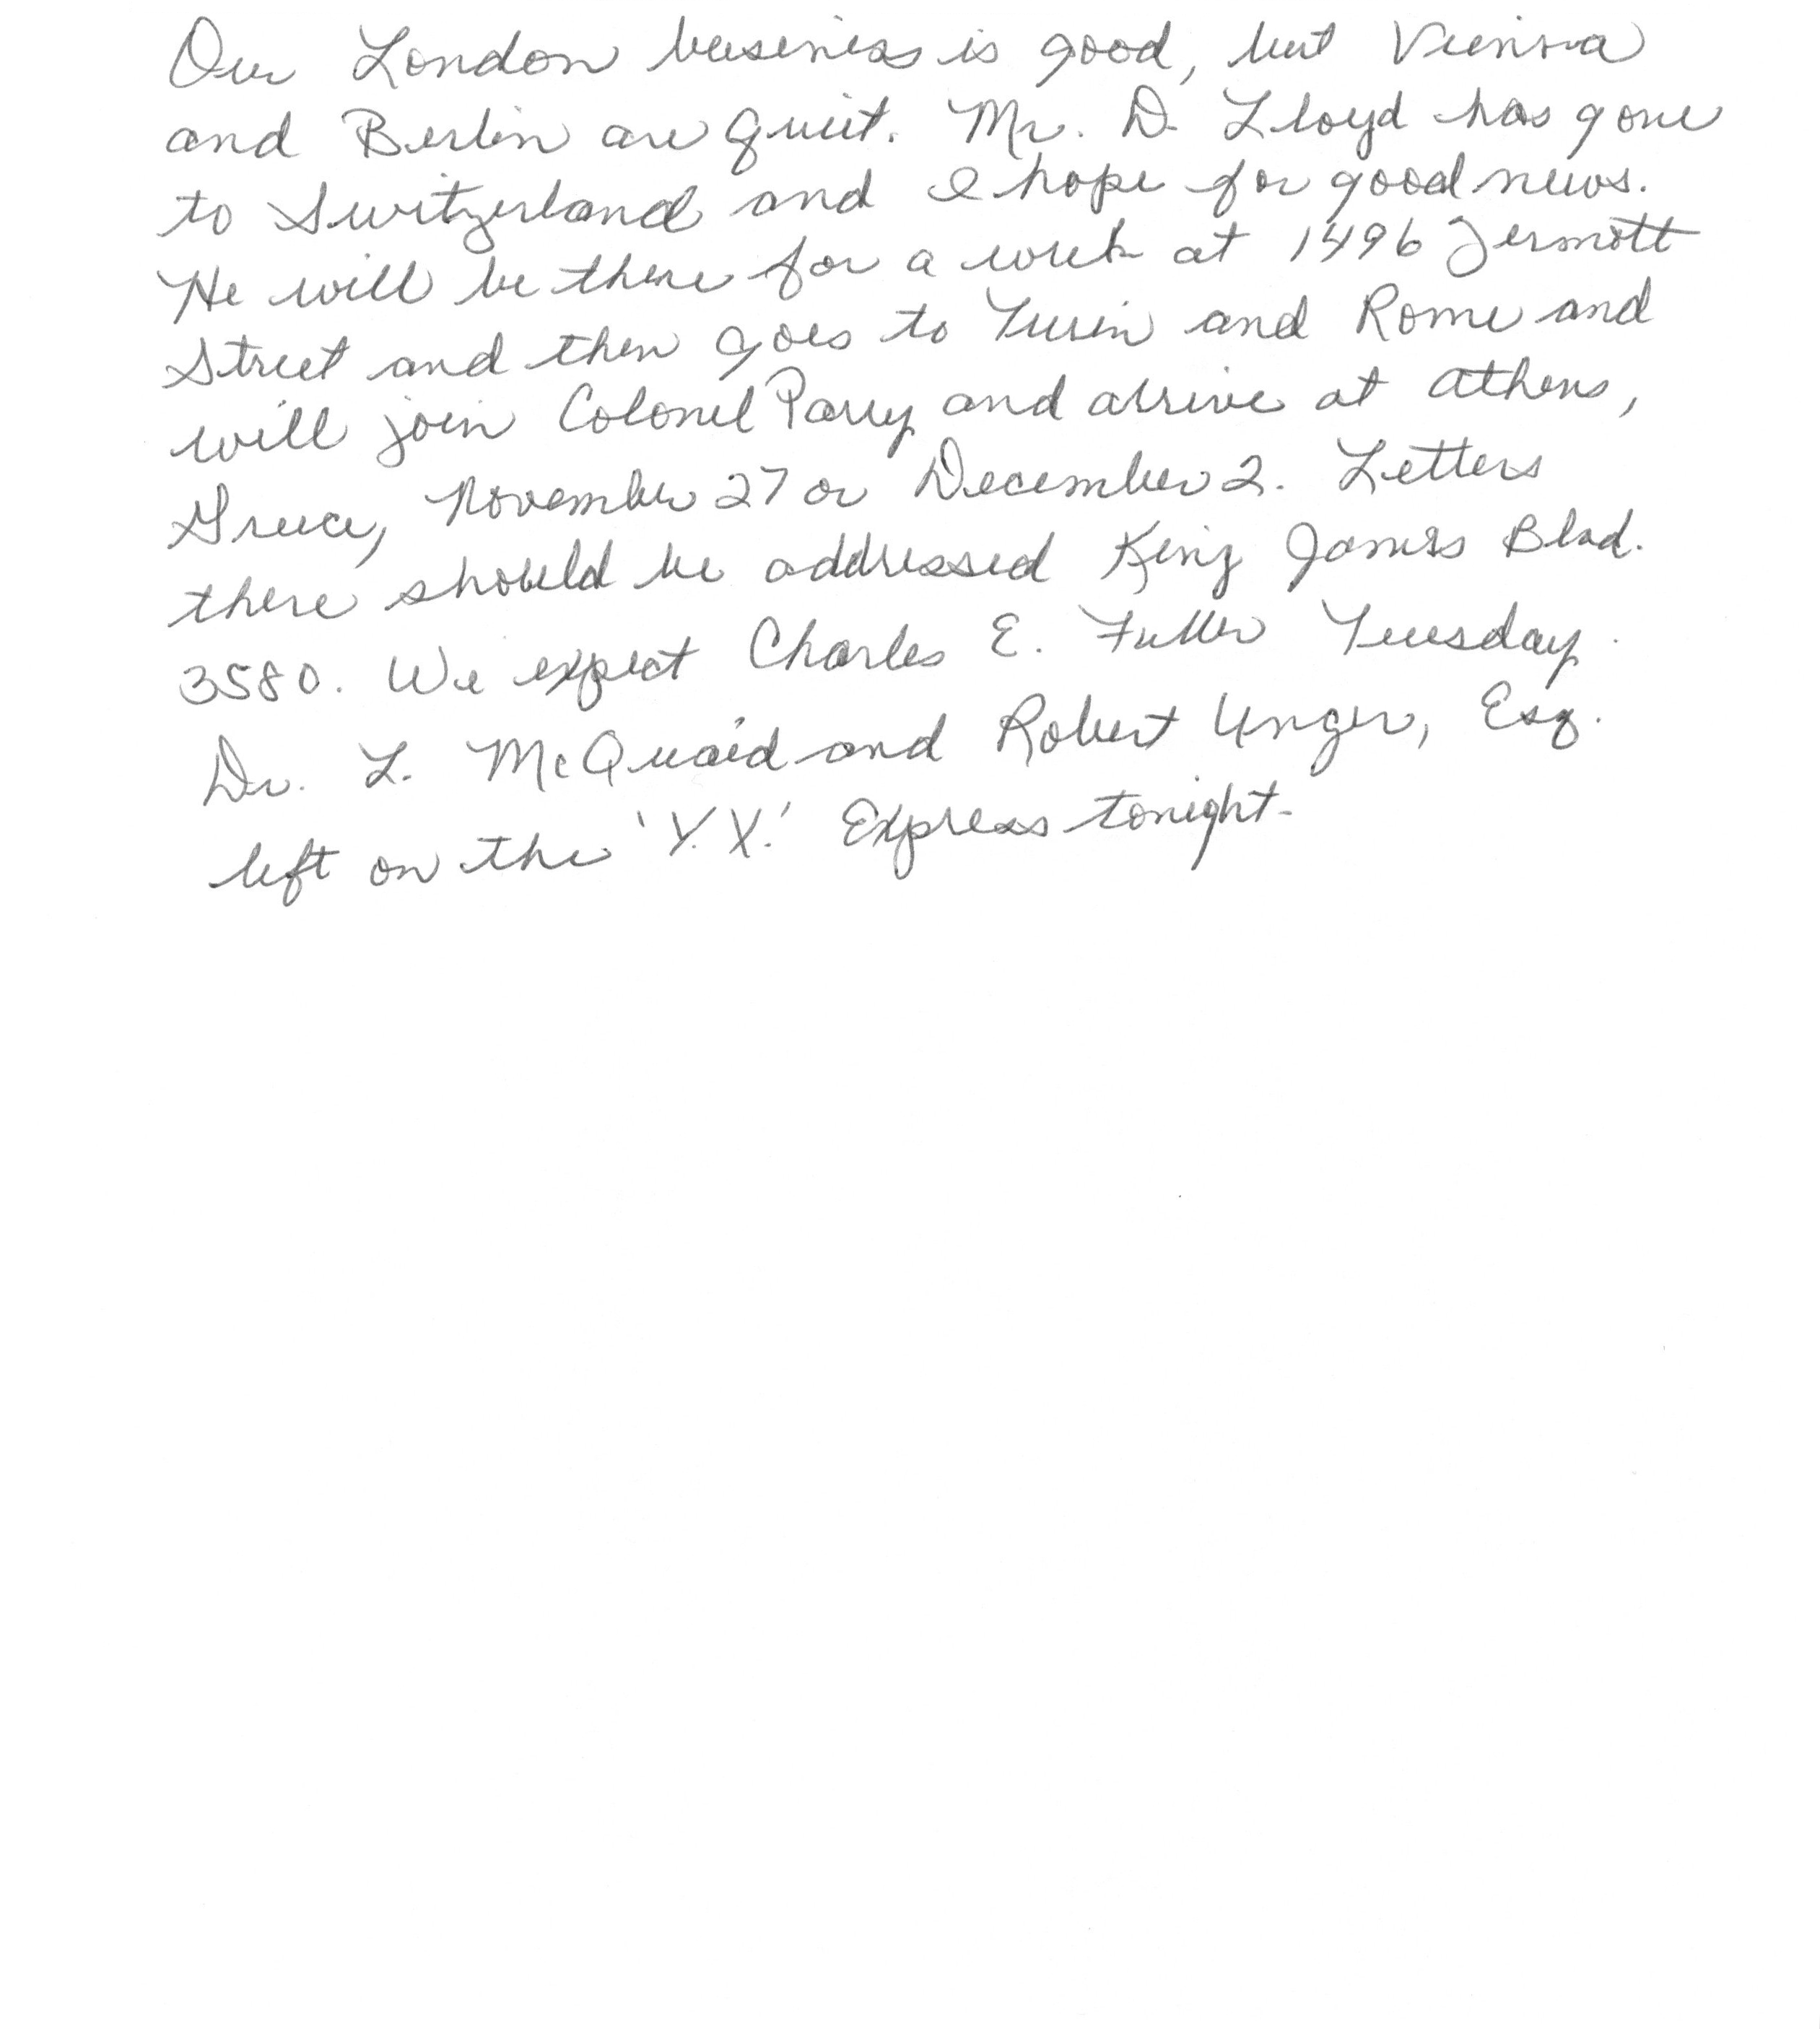 Our London business is good, but Vienna
and Berlin are quiet. Mr. D. Lloyd has gone
to Switzerland and I hope for good news.
He will be there for a week at 1496 Zermott
Street and then goes to Turin and Rome and
will join Colonel Parry and arrive at Athens,
Greece, November 27 or December 2. Letters
there should be addressed King James Blvd.
3580. We expect Charles E. Fuller Tuesday.
Dr. L. McQuaid and Robert Unger, Esq.
left on the 'Y.X.' Express tonight.